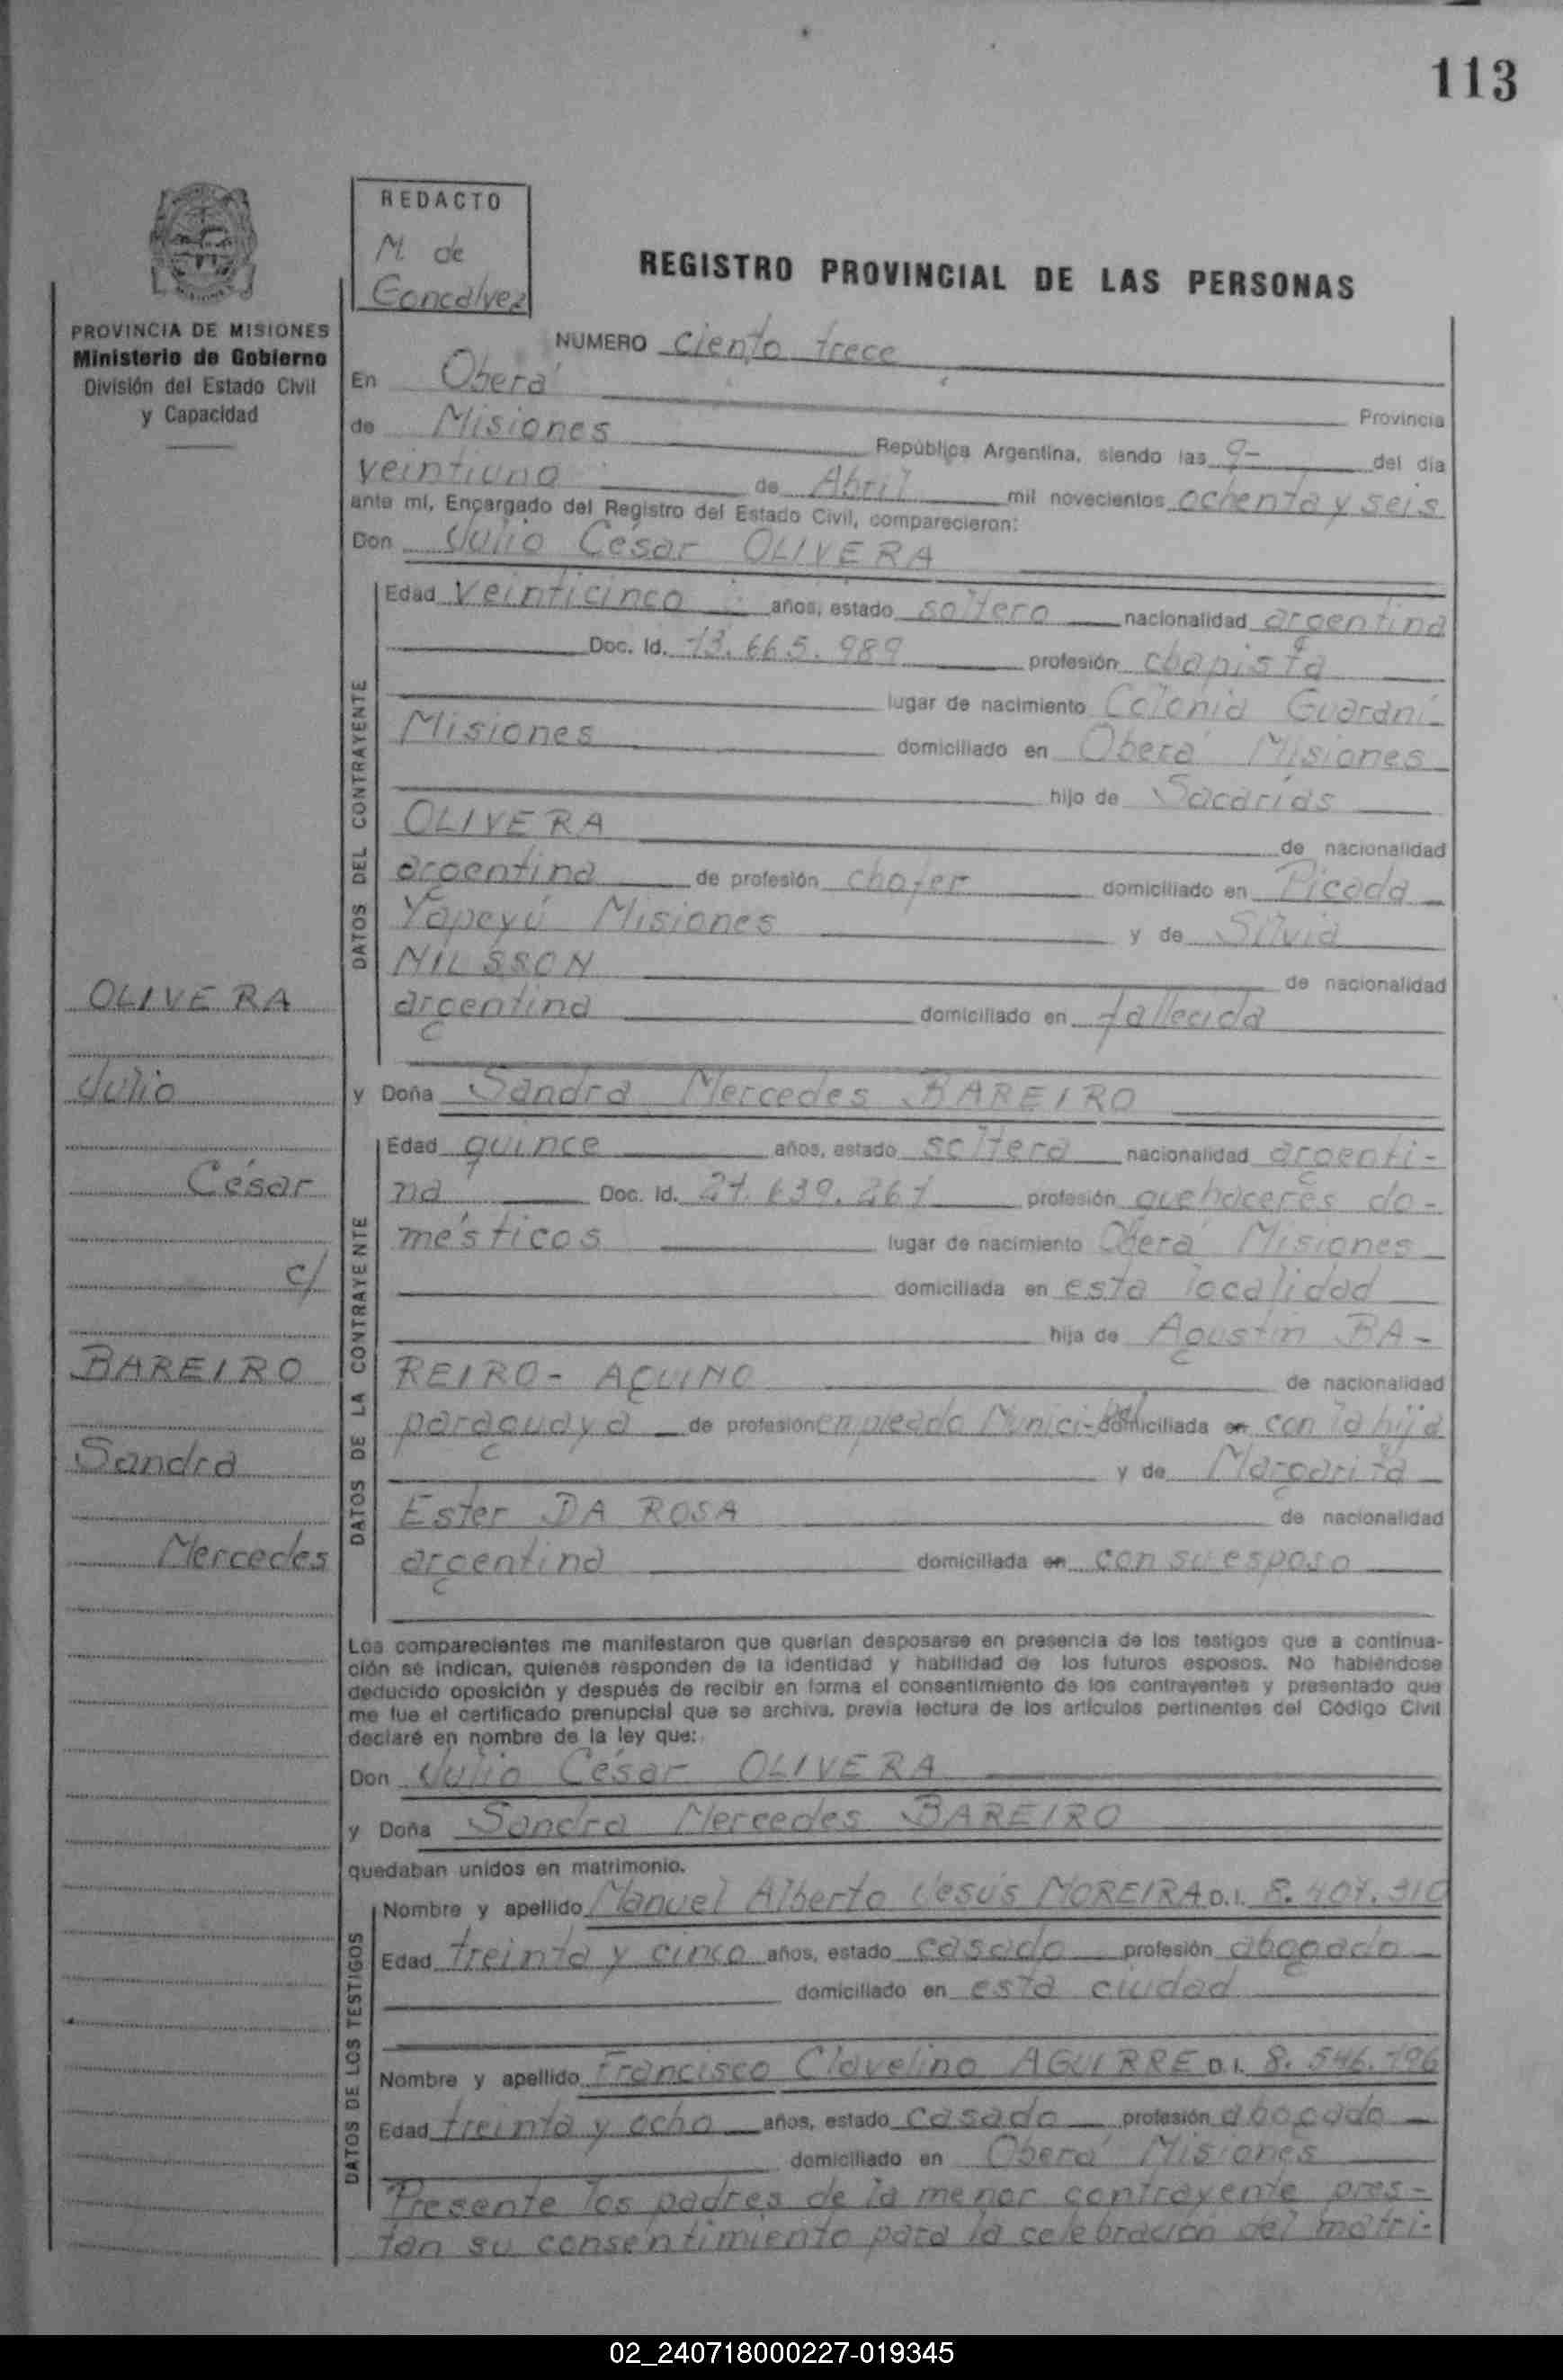 113
REDACTO
M. de
Goncalvez
REGISTRO PROVINCIAL DE LAS PERSONAS
PROVINCIA DE MISIONES
Ministerio de Gobierno
División del Estado Civil
y Capacidad
NUMERO ciento trece
En Oberá Provincia
de Misiones República Argentina, siendo las 9- del día
veintiuno de Abril mil novecientos ochenta y seis
ante mí, Encargado del Registro del Estado Civil, comparecieron:
Don Julio César OLIVERA
DATOS DEL CONTRAYENTE
Edad veinticinco años, estado soltero nacionalidad argentina
Doc. Id. 13.665.989 profesión chapista
lugar de nacimiento Colonia Guaraní
Misiones domiciliado en Oberá Misiones
hijo de Sacarías
OLIVERA de nacionalidad
argentina de profesión chofer domiciliado en Picada
Yapeyú Misiones y de Silvia
NILSSON de nacionalidad
argentina domiciliado en fallecida
y Doña Sandra Mercedes BAREIRO
OLIVERA
Julio
César
c/
BAREIRO
Sandra
Mercedes
DATOS DE LA CONTRAYENTE
Edad quince años, estado soltera nacionalidad argenti-
na Doc. Id. 21.639.261 profesión quehaceres do-
mésticos lugar de nacimiento Oberá Misiones
domiciliada en esta localidad
hija de Agustín BA-
REIRO- AQUINO de nacionalidad
paraguaya de profesión empleado Municipal domiciliada en con la hija
y de Margarita
Ester DA ROSA de nacionalidad
argentina domiciliada en con su esposo
Los comparecientes me manifestaron que querían desposarse en presencia de los testigos que a continua-
ción se indican, quienes responden de la identidad y habilidad de los futuros esposos. No habiéndose
deducido oposición y después de recibir en forma el consentimiento de los contrayentes y presentado que
me fue el certificado prenupcial que se archiva, previa lectura de los artículos pertinentes del Código Civil
declaré en nombre de la ley que:
Don Julio César OLIVERA
y Doña Sandra Mercedes BAREIRO
quedaban unidos en matrimonio.
DATOS DE LOS TESTIGOS
Nombre y apellido Manuel Alberto Jesús MOREIRA D.I. 8.407.310
Edad treinta y cinco años, estado casado profesión abogado
domiciliado en esta ciudad
Nombre y apellido Francisco Clavelino AGUIRRE D.I. 8.546.196
Edad treinta y ocho años, estado casado profesión abogado
domiciliado en Oberá Misiones
Presente los padres de la menor contrayente pres-
tan su consentimiento para la celebración del matri-
02_240718000227-019345